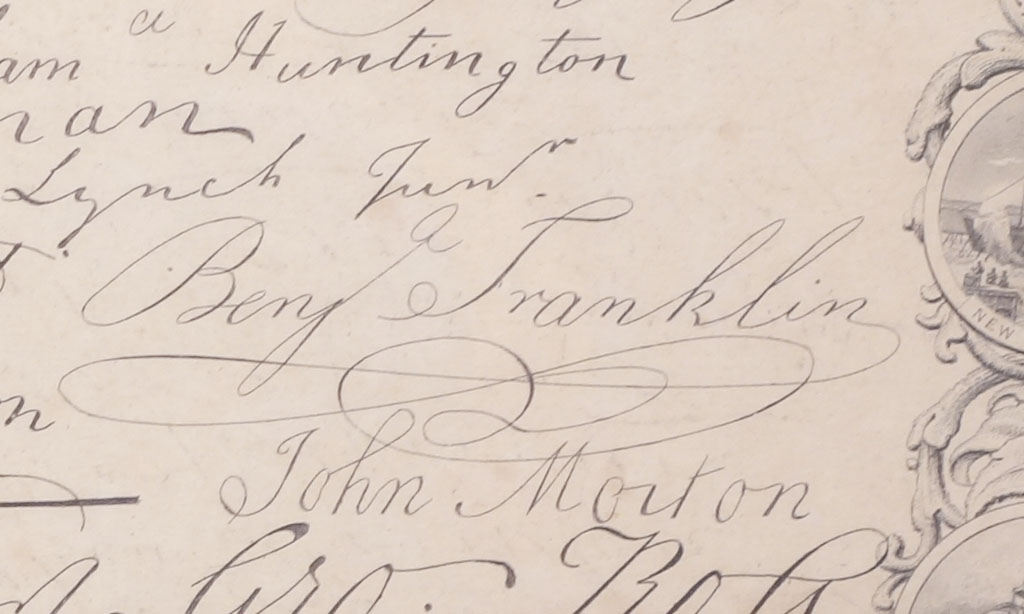 a
am Huntington
nan
Lynch Junr.
a
Benj Franklin
NEW
on
John Morton
Geo. Ro